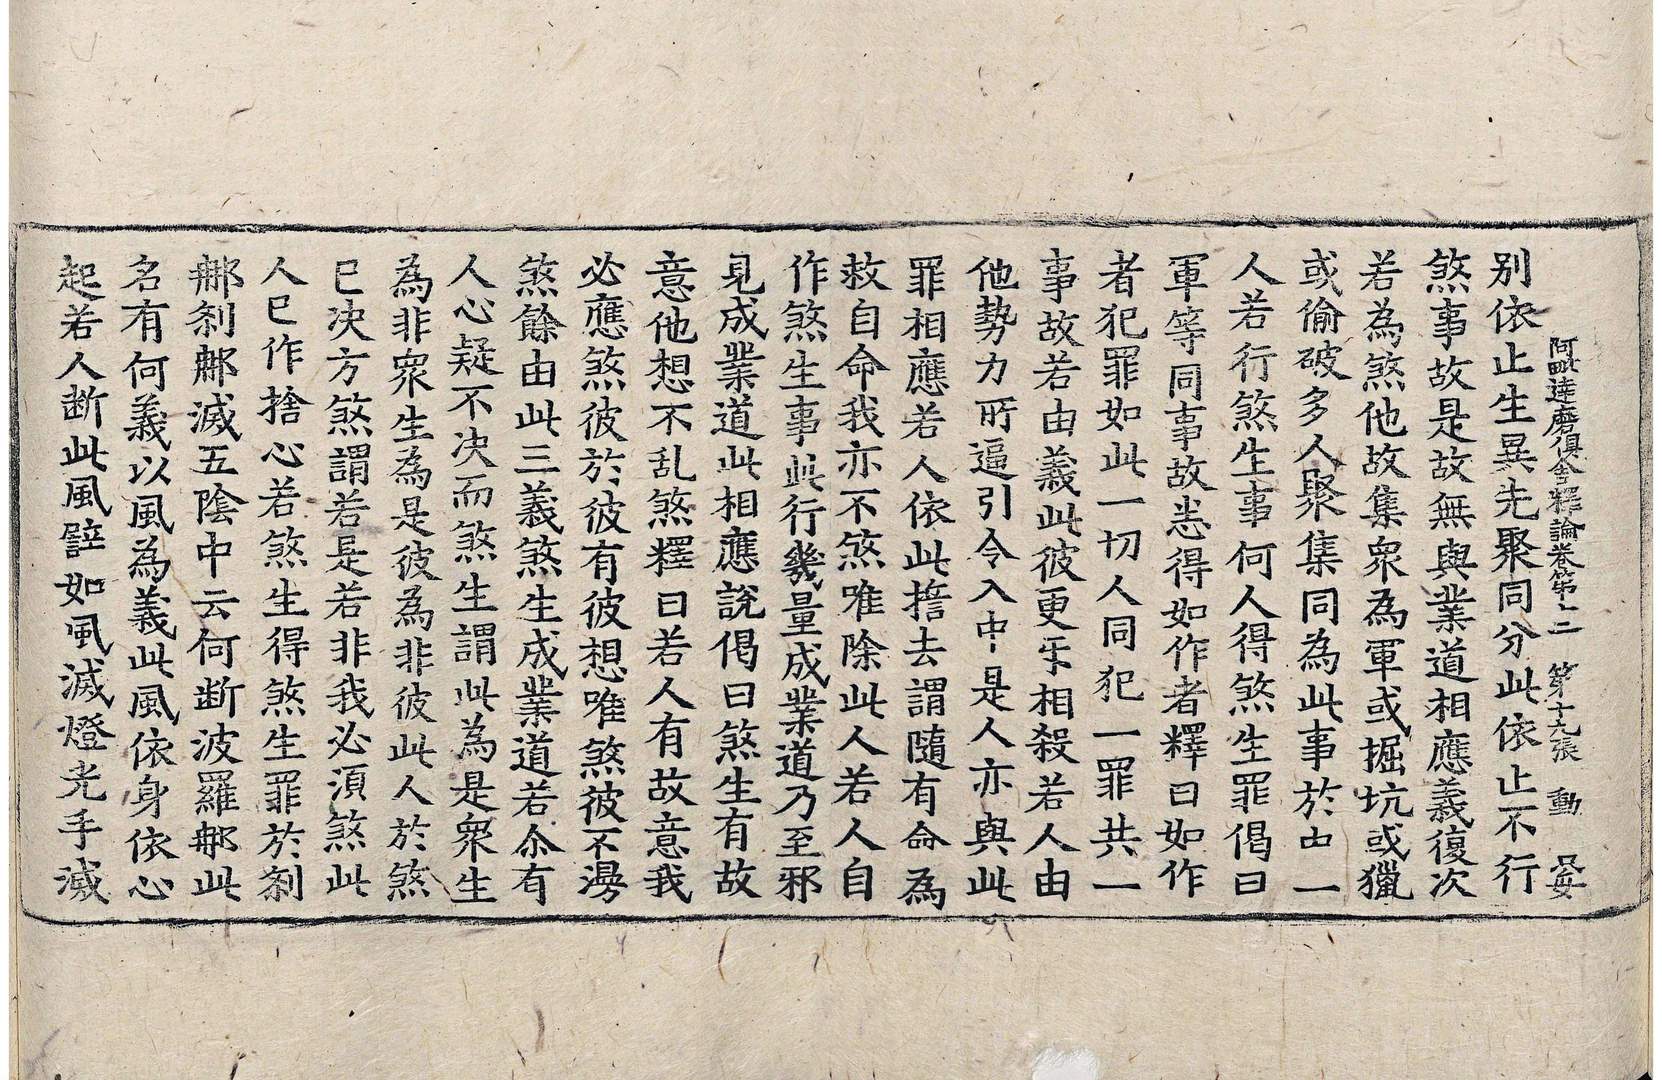 阿毗達磨俱舍釋論卷第十二 第十九張 動
別依止生異先聚同分此依止不行
煞事故是故無與業道相應義復次
若為煞他故集衆為軍或掘坑或獵
或偷破多人聚集同為此事於由一
人若行煞生事何人得煞生罪偈曰
軍等同事故悉得如作者釋曰如作
者犯罪如此一切人同犯一罪共一
事故若由義此彼更牙相殺若人由
他勢力所逼引令入中是人亦與此
罪相應若人依此擔去謂隨有命為
救自命我亦不煞唯除此人若人自
作煞生事此行幾量成業道乃至邪
見成業道此相應說偈曰煞生有故
意他想不乱煞釋曰若人有故意我
必應煞彼於彼有彼想唯煞彼不漫
煞餘由此三義煞生成業道若尒有
人心疑不决而煞生謂此為是衆生
為非衆生為是彼為非彼此人於煞
已决方煞謂若是若非我必須煞此
人已作捨心若煞生得煞生罪於剎
那剎那滅五陰中云何断波羅那此
名有何義以風為義此風依身依心
起若人断此風譬如風滅燈光手滅